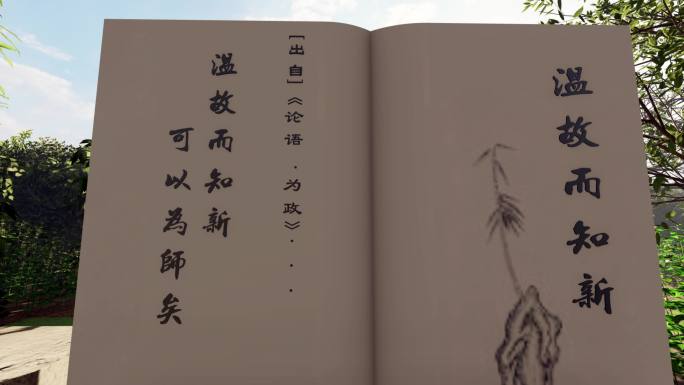 温故而知新
[出自]《论语.为政》...
温故而知新
可以為師矣